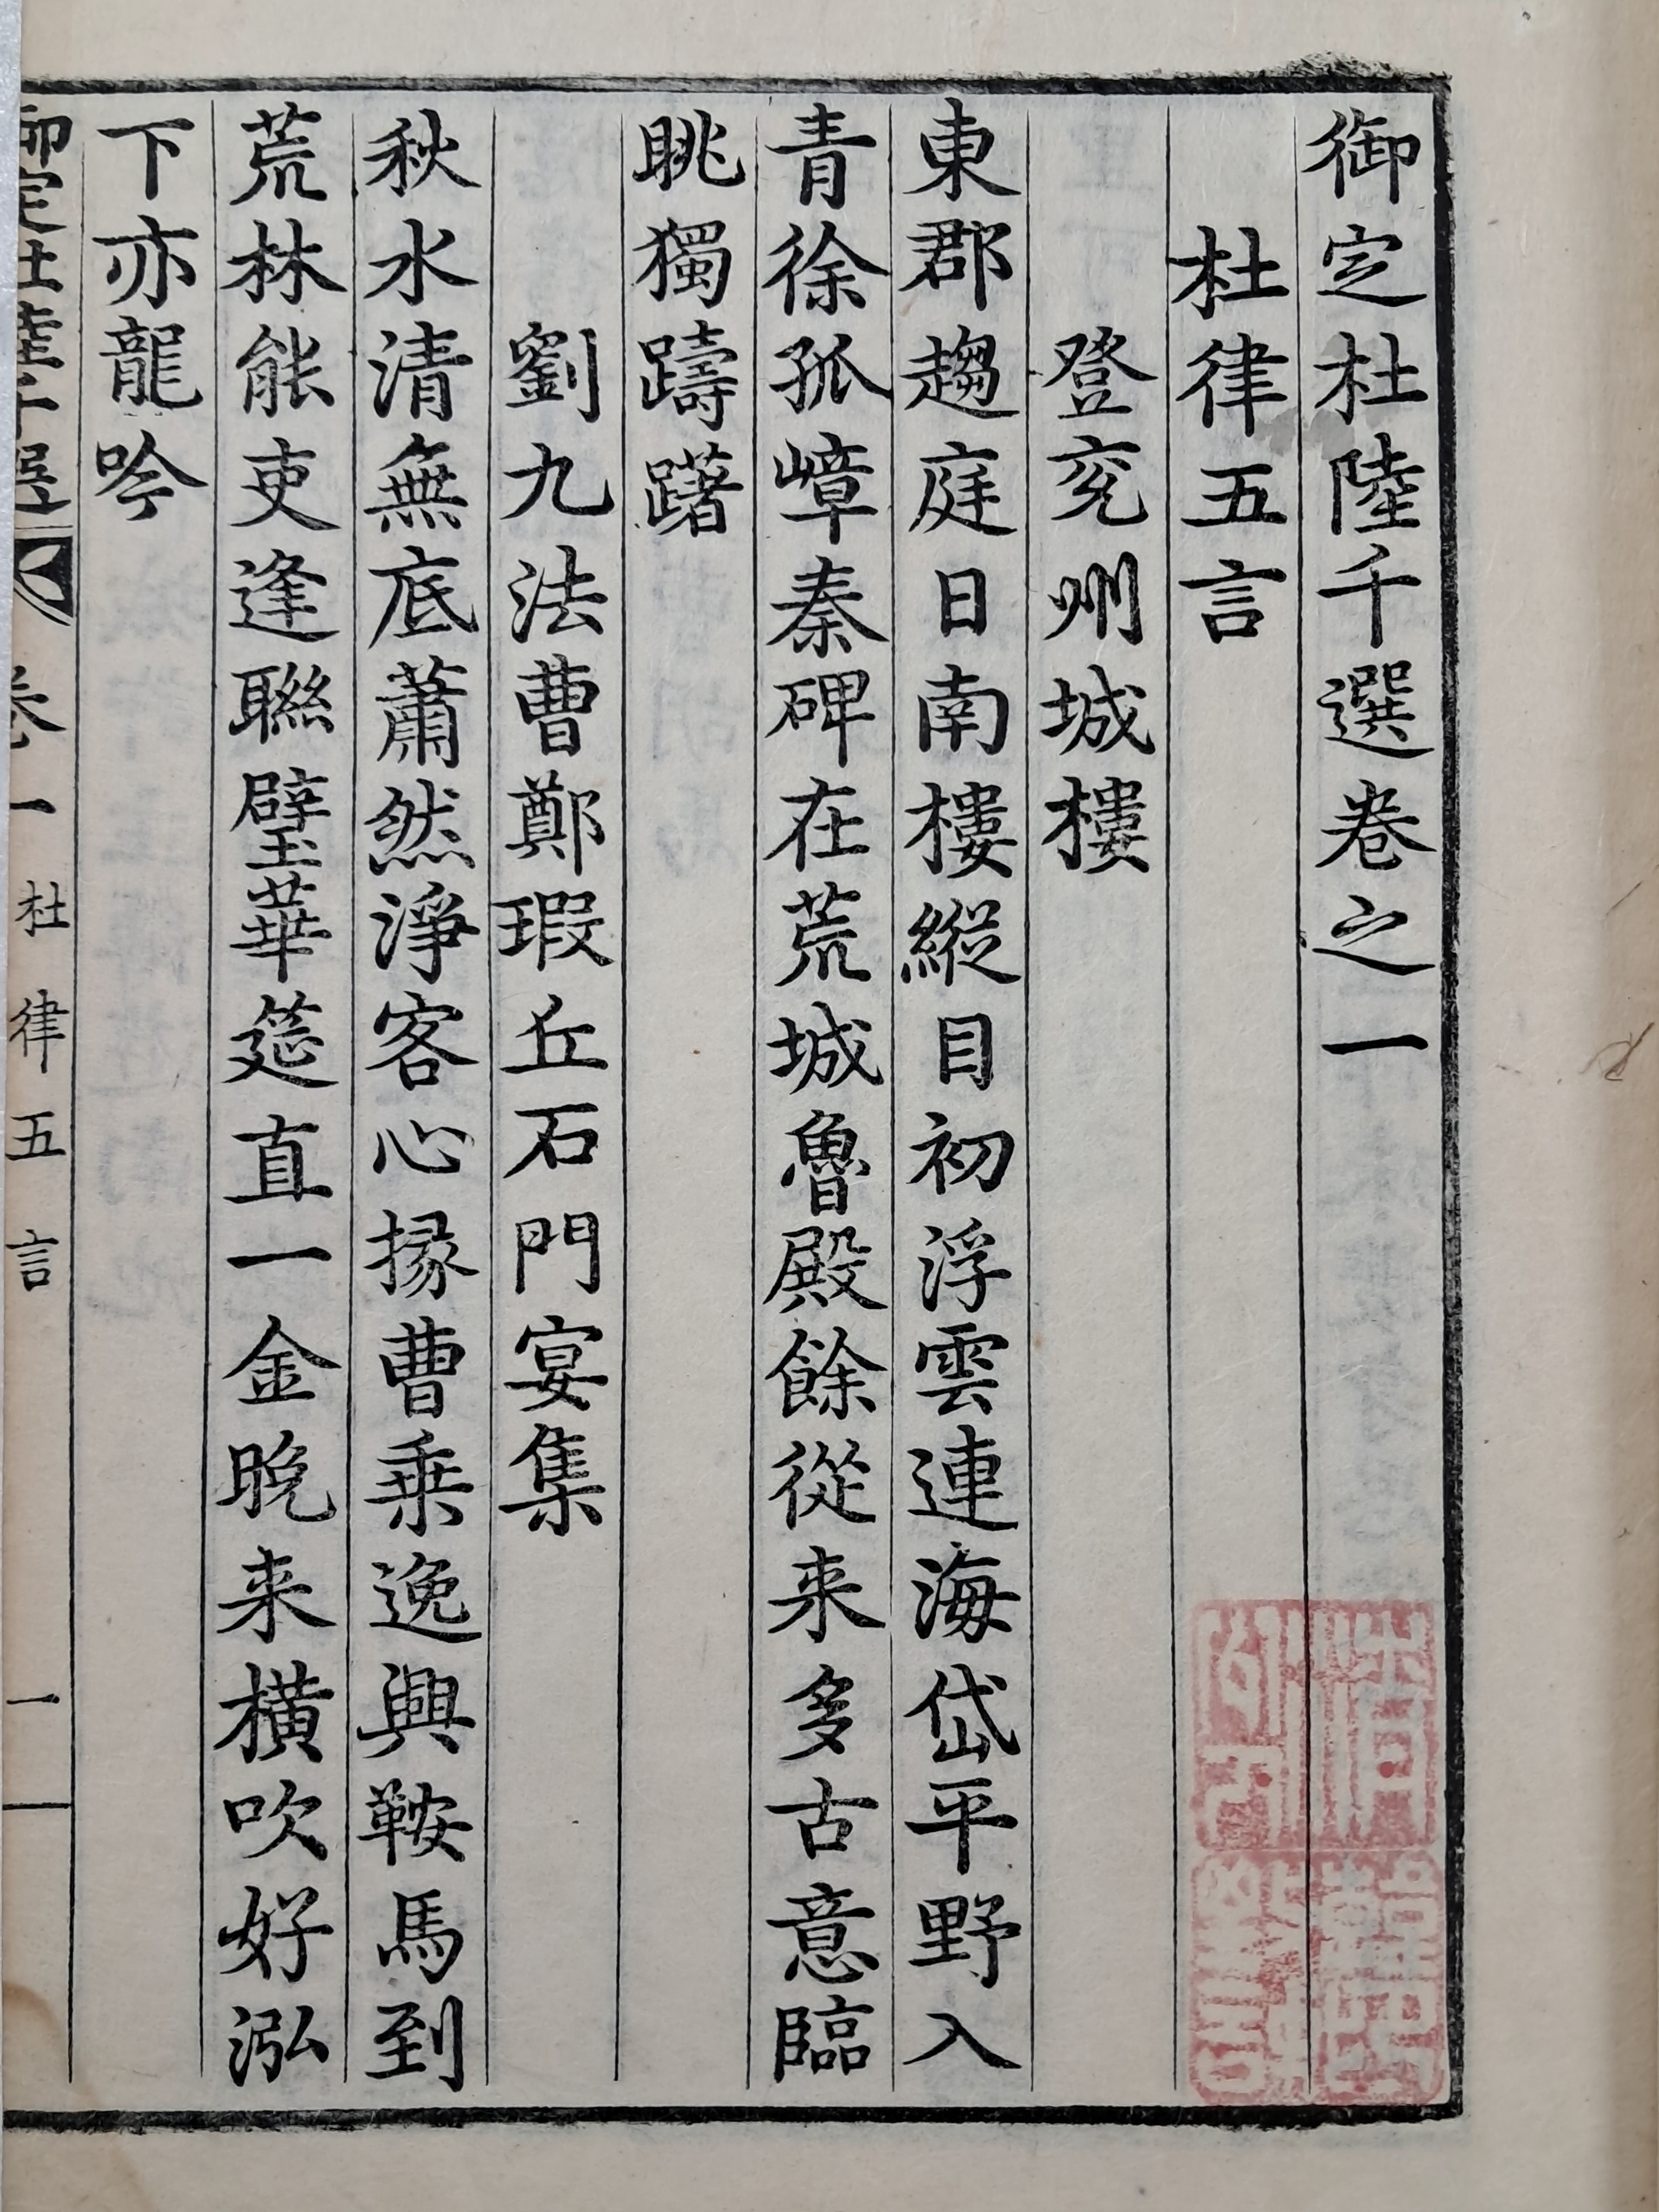 御定杜陸千選卷之一
杜律五言
登兖州城樓
東郡趨庭日南樓縱目初浮雲連海岱平野入
青徐孤嶂秦碑在荒城魯殿餘從来多古意臨
眺獨躊躇
劉九法曹鄭瑕丘石門宴集
秋水清無底蕭然淨客心掾曹乗逸興鞍馬到
荒林能吏逢聯璧華筵直一金晚来橫吹好泓
下亦龍吟
御定杜陸千選 卷一 杜律五言 一